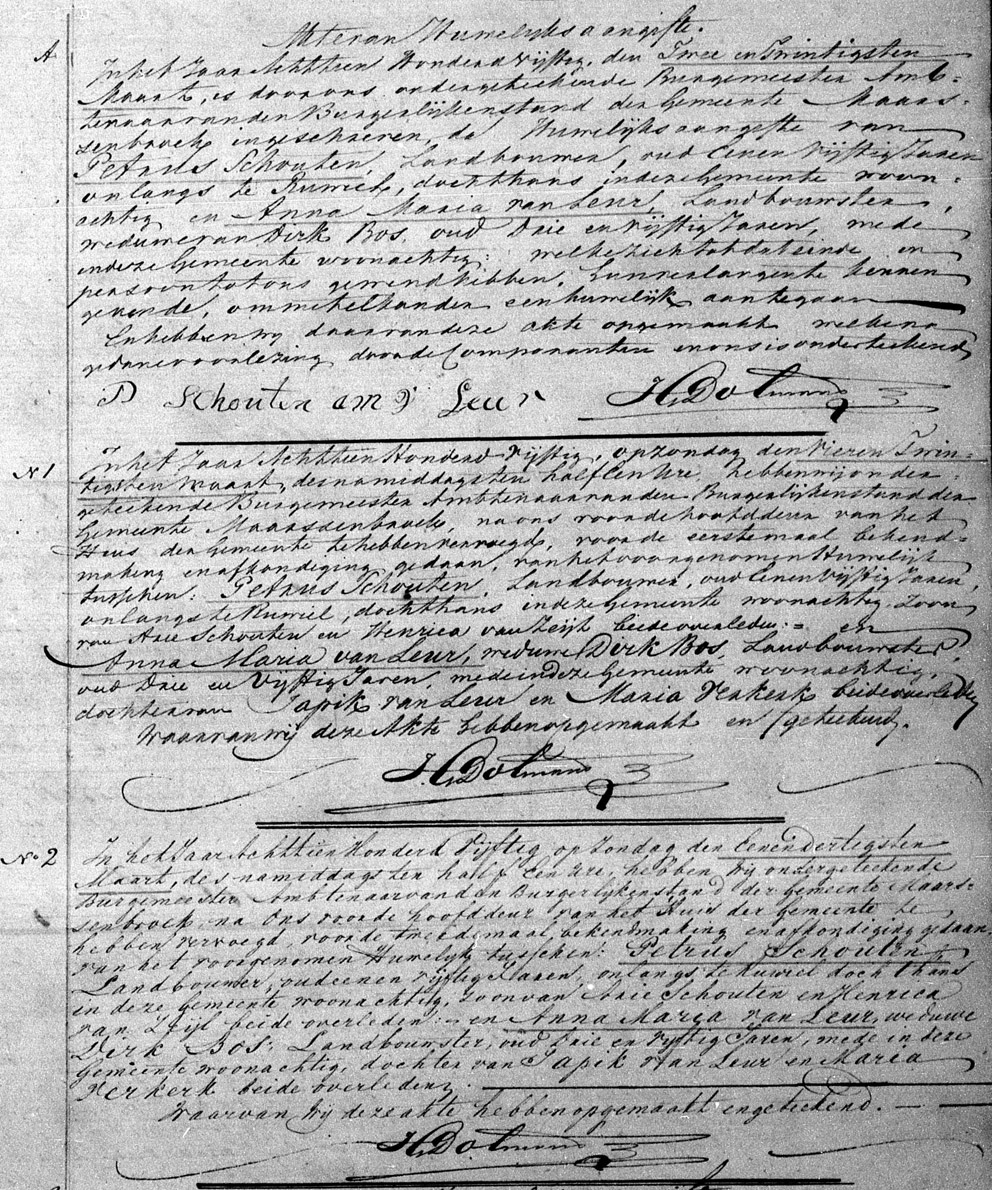 Akte van Huwelijks aangifte.
A
In het Jaar Achttien Honderd Vijftig, den Twee en Twintigsten
Maart, is door ons ondergeteekende Burgemeester Amb-
tenaar van den Burgerlijkenstand der Gemeente Maars-
senbroek ingeschreven, de Huwelijks aangifte van
Petrus Schouten, Landbouwer, oud Eenen Vijftig Jaren
onlangs te Ruwiel, doch thans in deze Gemeente woon-
achtig en Anna Maria van Leur, Landbouwster,
weduwe van Dirk Bos, oud Drie en Vijftig Jaren, mede
in deze Gemeente woonachtig: welke zich tot dat einde in
persoon tot ons gewend hebben, hun verlangen te kennen
gevende, om met elkander een huwelijk aan te gaan
En hebben wij daarvan deze akte opgemaakt welke na
gedane voorlezing door de Comparanten en ons is onderteekend
P Schouten a m v Leur H. Dolmans
No 1
In het Jaar Achttien Honderd Vijftig, op zondag den Vier en Twin-
tigsten Maart, des namiddags ten half Een Ure, hebben wij onder-
geteekende Burgemeester Ambtenaar van den Burgerlijkenstand der
Gemeente Maarssenbroek, na ons voor de hoofddeur van het
Huis der Gemeente te hebben vervoegd, voor de eerstemaal bekend-
making en afkondiging gedaan, van het voorgenomen Huwelijk
tusschen: Petrus Schouten, Landbouwer, oud Eenen Vijftig Jaren,
onlangs te Ruwiel, doch thans in deze Gemeente woonachtig, Zoon
van Arie Schouten en Henrica van Zeijl beide overleden: = en
Anna Maria van Leur, weduwe Dirk Bos, Landbouwster,
oud Drie en Vijftig Jaren, mede in deze Gemeente woonachtig,
dochter van Japik van Leur en Maria Verkerk beide overleden
Waarvan wij deze Akte hebben opgemaakt en geteekend.
H. Dolmans
No 2
In het Jaar Achttien Honderd Vijftig op Zondag den Eenendertigsten
Maart, des namiddags ten half Een Ure, hebben Wij ondergeteekende
Burgemeester Ambtenaar van den Burgerlijkenstand der gemeente Maars-
senbroek, na Ons voor de hoofddeur van het Huis der Gemeente te
hebben vervoegd, voor de tweedemaal bekenmaking en afkondiging gedaan,
van het voorgenomen Huwelijk tusschen: Petrus Schouten,
Landbouwer, oud eenen vijftig Jaren, onlangs te Ruwiel doch thans
in deze gemeente woonachtig, zoon van Arie Schouten en Henrica
van Zeijl beide overleden: – en Anna Maria van Leur, weduwe
Dirk Bos, Landbounster, oud Drie en Vyftig Jaren, mede in deze
Gemeente woonachtig, dochter van Japik van Leur en Maria
Verkerk beide overleden.
Waarvan Wij deze akte hebben opgemaakt en geteekend.
H. Dolmans